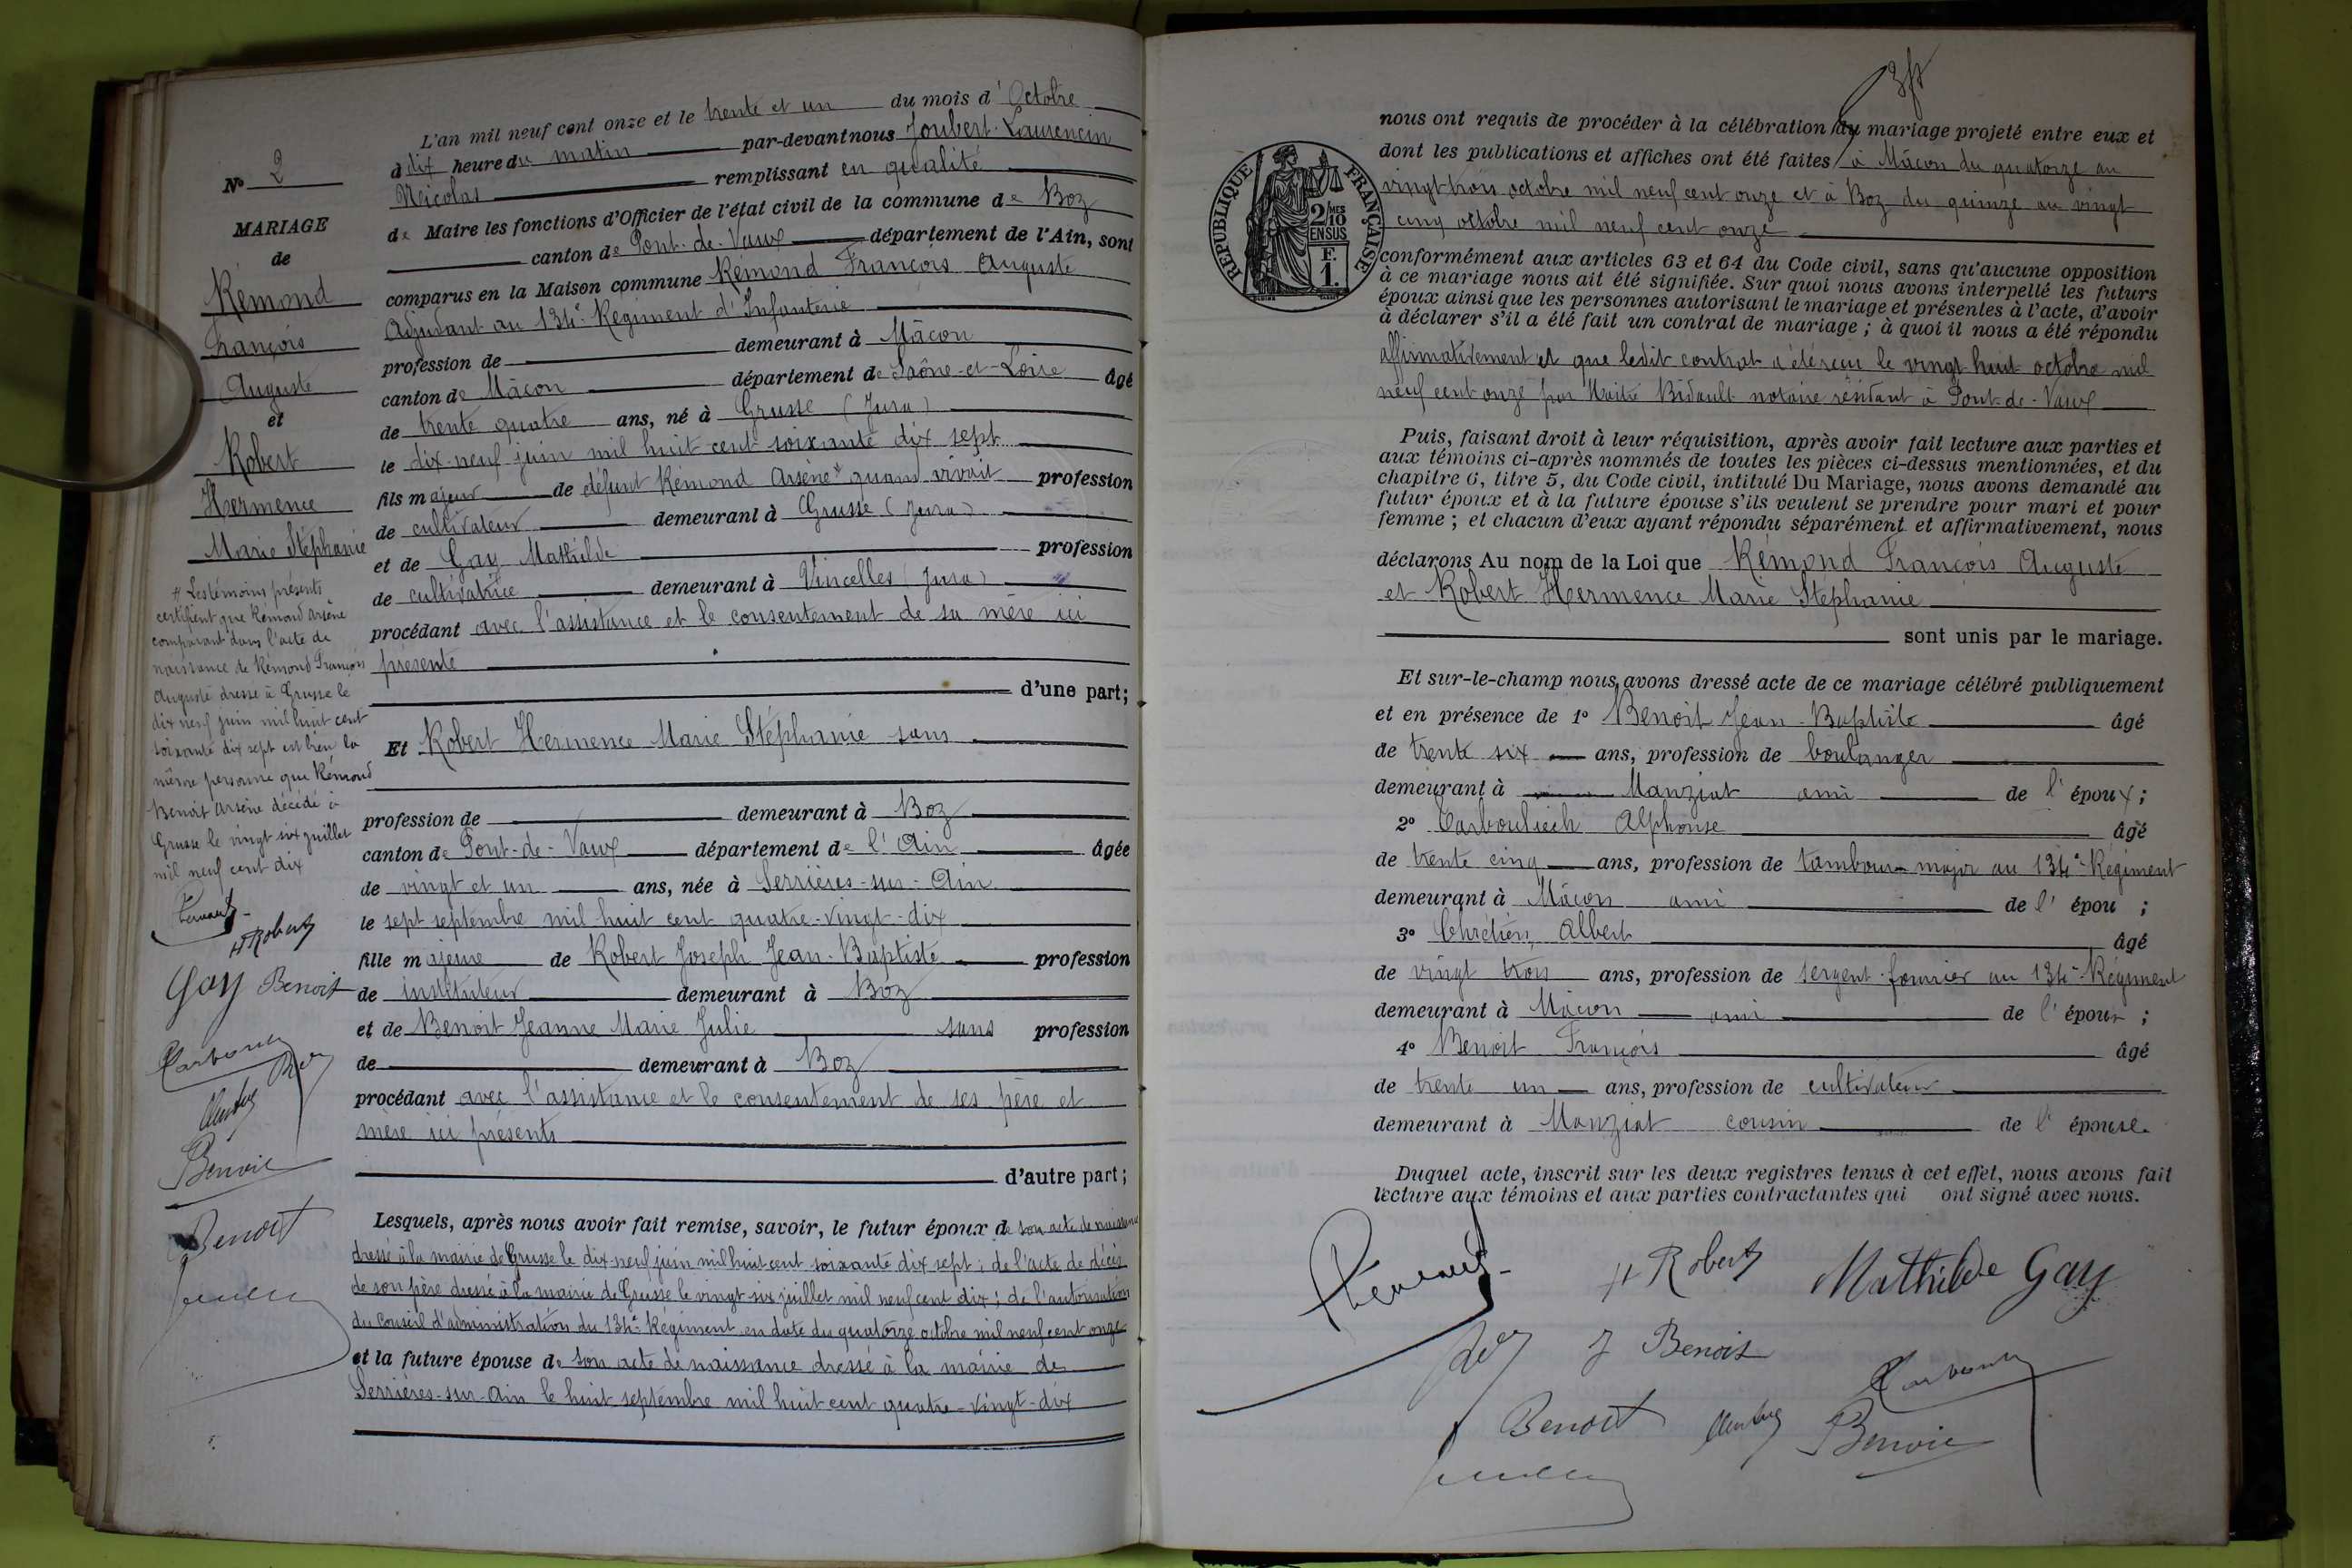 N° 2
MARIAGE
de
Rémond
François
Auguste
et
Robert
Hermence
Marie Stéphanie
# Les témoins présents
certifient que Rémond Arsène
comparant dans l'acte de
naissance de Rémond François
Auguste dressé à Grusse le
dix neuf juin mil huit cent
soixante dix sept est bien la
même personne que Rémond
Benoit Arsène décédé à
Grusse le vingt six juillet
mil neuf cent dix
H Robert
Gay Benoit
Benoit
L'an mil neuf cent onze et le trente et un du mois d'Octobre
à dix heure du matin par-devant nous Joubert Laurencin
Nicolas remplissant en qualité
de Maire les fonctions d'Officier de l'état civil de la commune de Boz
canton de Pont-de-Vaux département de l'Ain, sont
comparus en la Maison commune Rémond François Auguste
Adjudant au 134e Régiment d'Infanterie
profession de demeurant à Mâcon
canton de Mâcon département de Saône-et-Loire âgé
de trente quatre ans, né à Grusse (Jura)
le dix-neuf juin mil huit cent soixante dix sept
fils majeur de défunt Rémond Arsène # quand vivait profession
de cultivateur demeurant à Grusse (Jura)
et de Gay Mathilde profession
de cultivatrice demeurant à Vincelles (Jura)
procédant avec l'assistance et le consentement de sa mère ici
présente
d'une part;
Et Robert Hermence Marie Stéphanie sans
profession de demeurant à Boz
canton de Pont-de-Vaux département de l'Ain âgée
de vingt et un ans, née à Serrières-sur-Ain
le sept septembre mil huit cent quatre-vingt-dix
fille majeure de Robert Joseph Jean-Baptiste profession
de instituteur demeurant à Boz
et de Benoit Jeanne Marie Julie sans profession
de demeurant à Boz
procédant avec l'assistance et le consentement de ses père et
mère ici présents
d'autre part;
Lesquels, après nous avoir fait remise, savoir, le futur époux de son acte de naissance
dressé à la mairie de Grusse le dix-neuf juin mil huit cent soixante dix sept; de l'acte de décès
de son père dressé à la mairie de Grusse le vingt six juillet mil neuf cent dix; de l'autorisation
du Conseil d'administration du 134e Régiment en date du quatorze octobre mil neuf cent onze
et la future épouse de son acte de naissance dressé à la mairie de
Serrières-sur-Ain le huit septembre mil huit cent quatre-vingt-dix
nous ont requis de procéder à la célébration du mariage projeté entre eux et
dont les publications et affiches ont été faites à Mâcon du quatorze au
vingt trois octobre mil neuf cent onze et à Boz du quinze au vingt
cinq octobre mil neuf cent onze
RÉPUBLIQUE FRANÇAISE
2/10 MES
EN SUS
F.
1.
conformément aux articles 63 et 64 du Code civil, sans qu'aucune opposition
à ce mariage nous ait été signifiée. Sur quoi nous avons interpellé les futurs
époux ainsi que les personnes autorisant le mariage et présentes à l'acte, d'avoir
à déclarer s'il a été fait un contrat de mariage; à quoi il nous a été répondu
affirmativement et que ledit contrat a été reçu le vingt huit octobre mil
neuf cent onze par Maître Bidault notaire résidant à Pont-de-Vaux
Puis, faisant droit à leur réquisition, après avoir fait lecture aux parties et
aux témoins ci-après nommés de toutes les pièces ci-dessus mentionnées, et du
chapitre 6, titre 5, du Code civil, intitulé Du Mariage, nous avons demandé au
futur époux et à la future épouse s'ils veulent se prendre pour mari et pour
femme; et chacun d'eux ayant répondu séparément et affirmativement, nous
déclarons Au nom de la Loi que Rémond François Auguste
et Robert Hermence Marie Stéphanie
sont unis par le mariage.
Et sur-le-champ nous avons dressé acte de ce mariage célébré publiquement
et en présence de 1° Benoit Jean-Baptiste âgé
de trente six ans, profession de boulanger
demeurant à Manziat ami de l'époux;
2° Carbouliech Alphonse âgé
de trente cinq ans, profession de tambour-major au 134e Régiment
demeurant à Mâcon ami de l'épou ;
3° Chrétien Albert âgé
de vingt trois ans, profession de sergent-fourrier au 134e Régiment
demeurant à Mâcon ami de l'époux ;
4° Benoit François âgé
de trente un ans, profession de cultivateur
demeurant à Manziat cousin de l'épouse.
Duquel acte, inscrit sur les deux registres tenus à cet effet, nous avons fait
lecture aux témoins et aux parties contractantes qui ont signé avec nous.
H Robert Mathilde Gay
J Benoit
Benoit